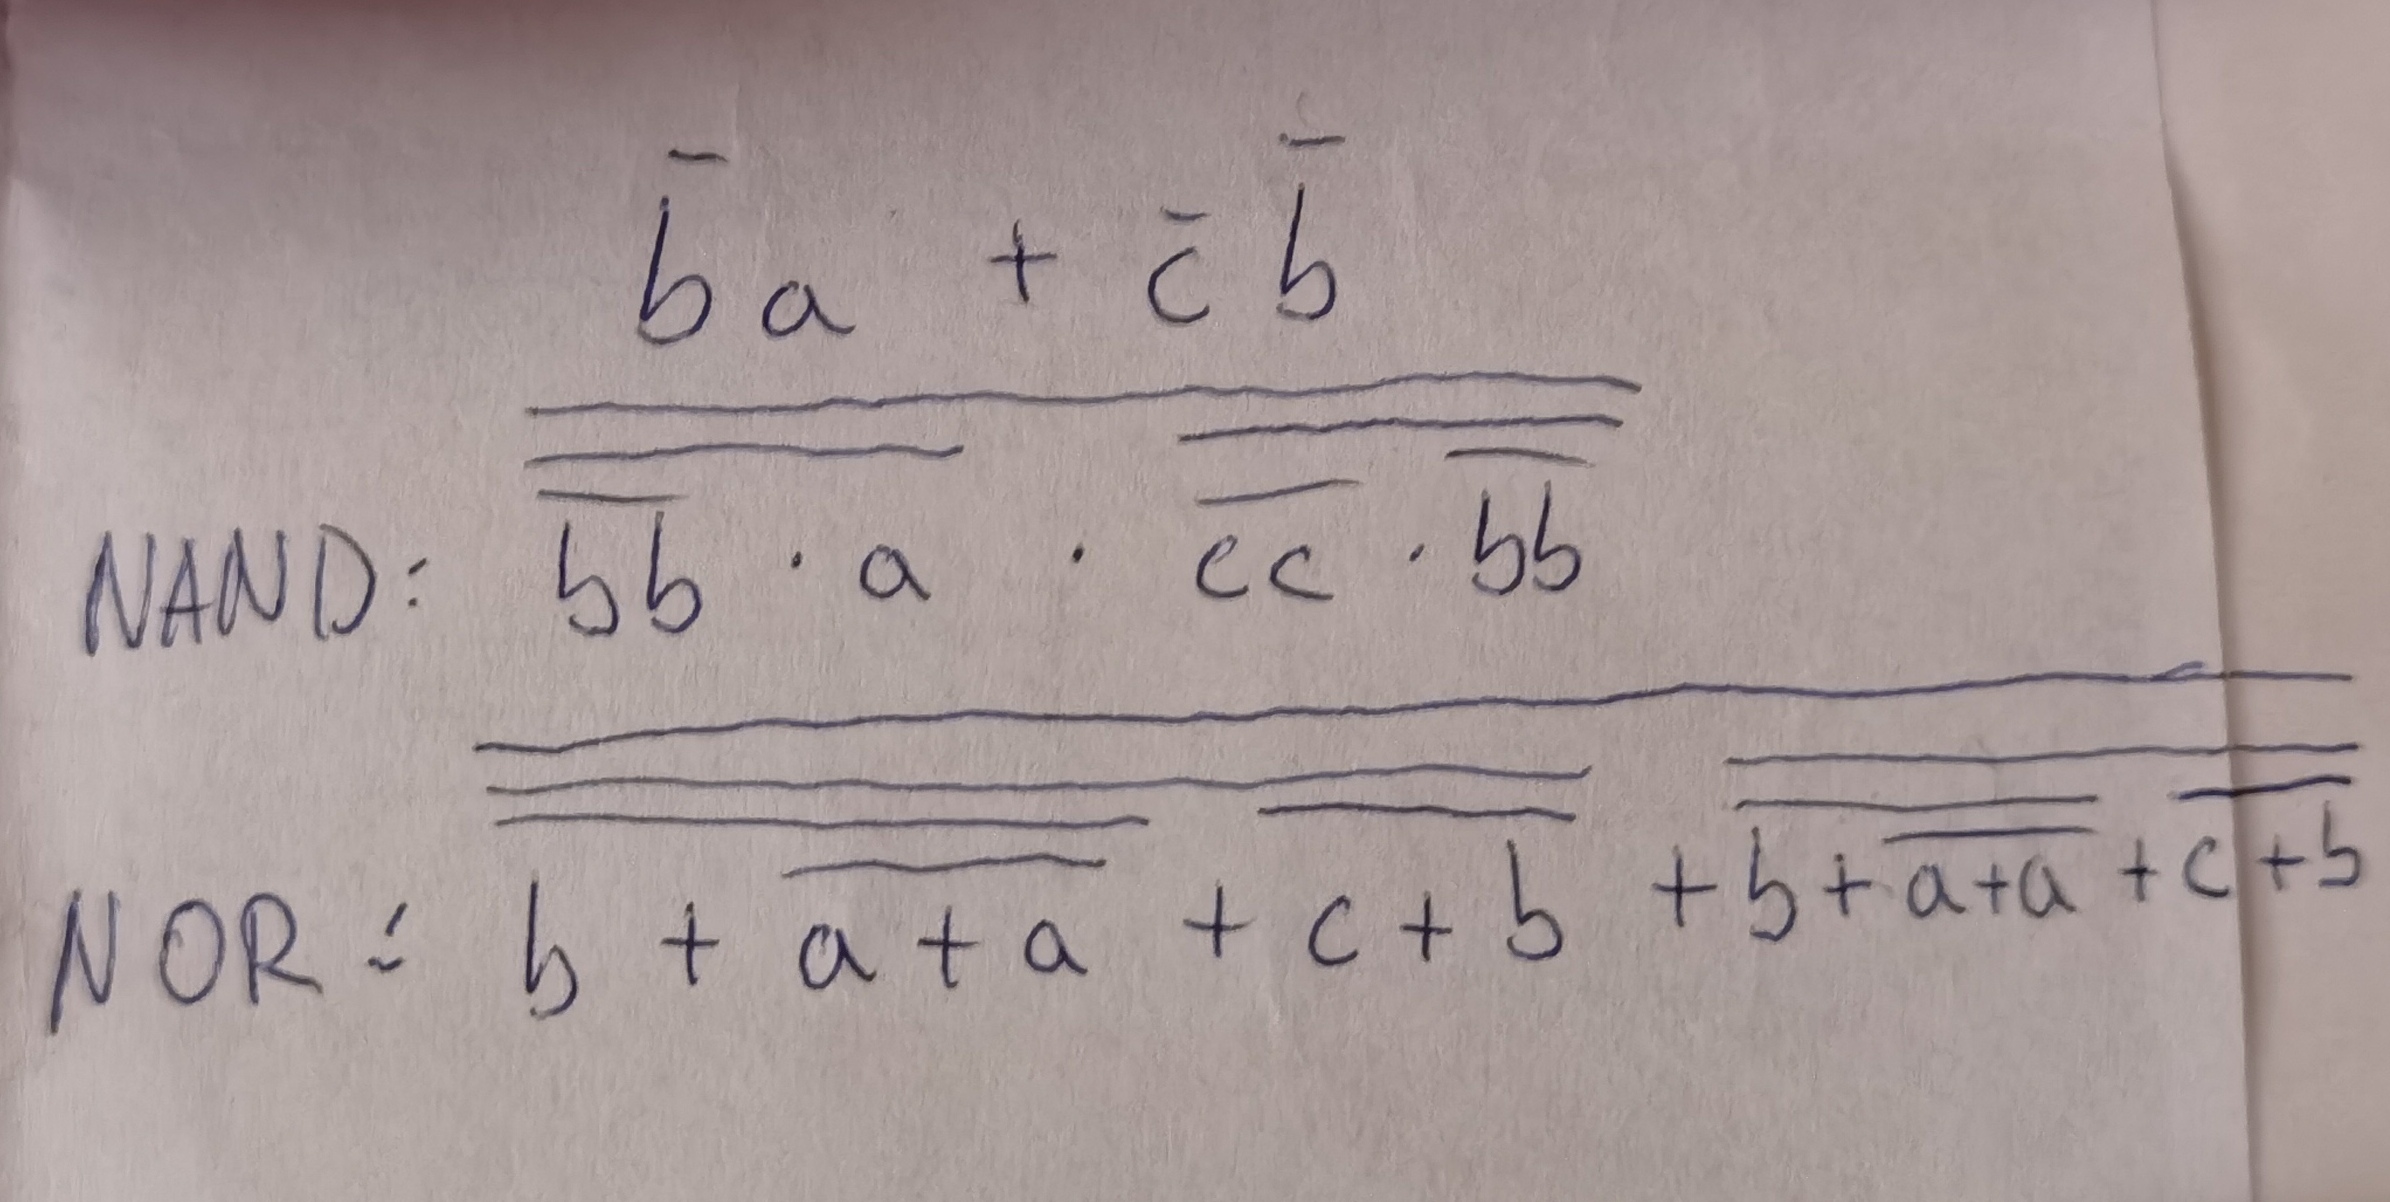 b̄ a + c̄ b̄
NAND: $\overline{\overline{\overline{bb} \cdot a} \cdot \overline{\overline{cc} \cdot \overline{bb}}}$
NOR: $\overline{\overline{\overline{b + \overline{a + a}} + \overline{c + b}} + \overline{\overline{b + \overline{a + a}} + \overline{c + b}}}$